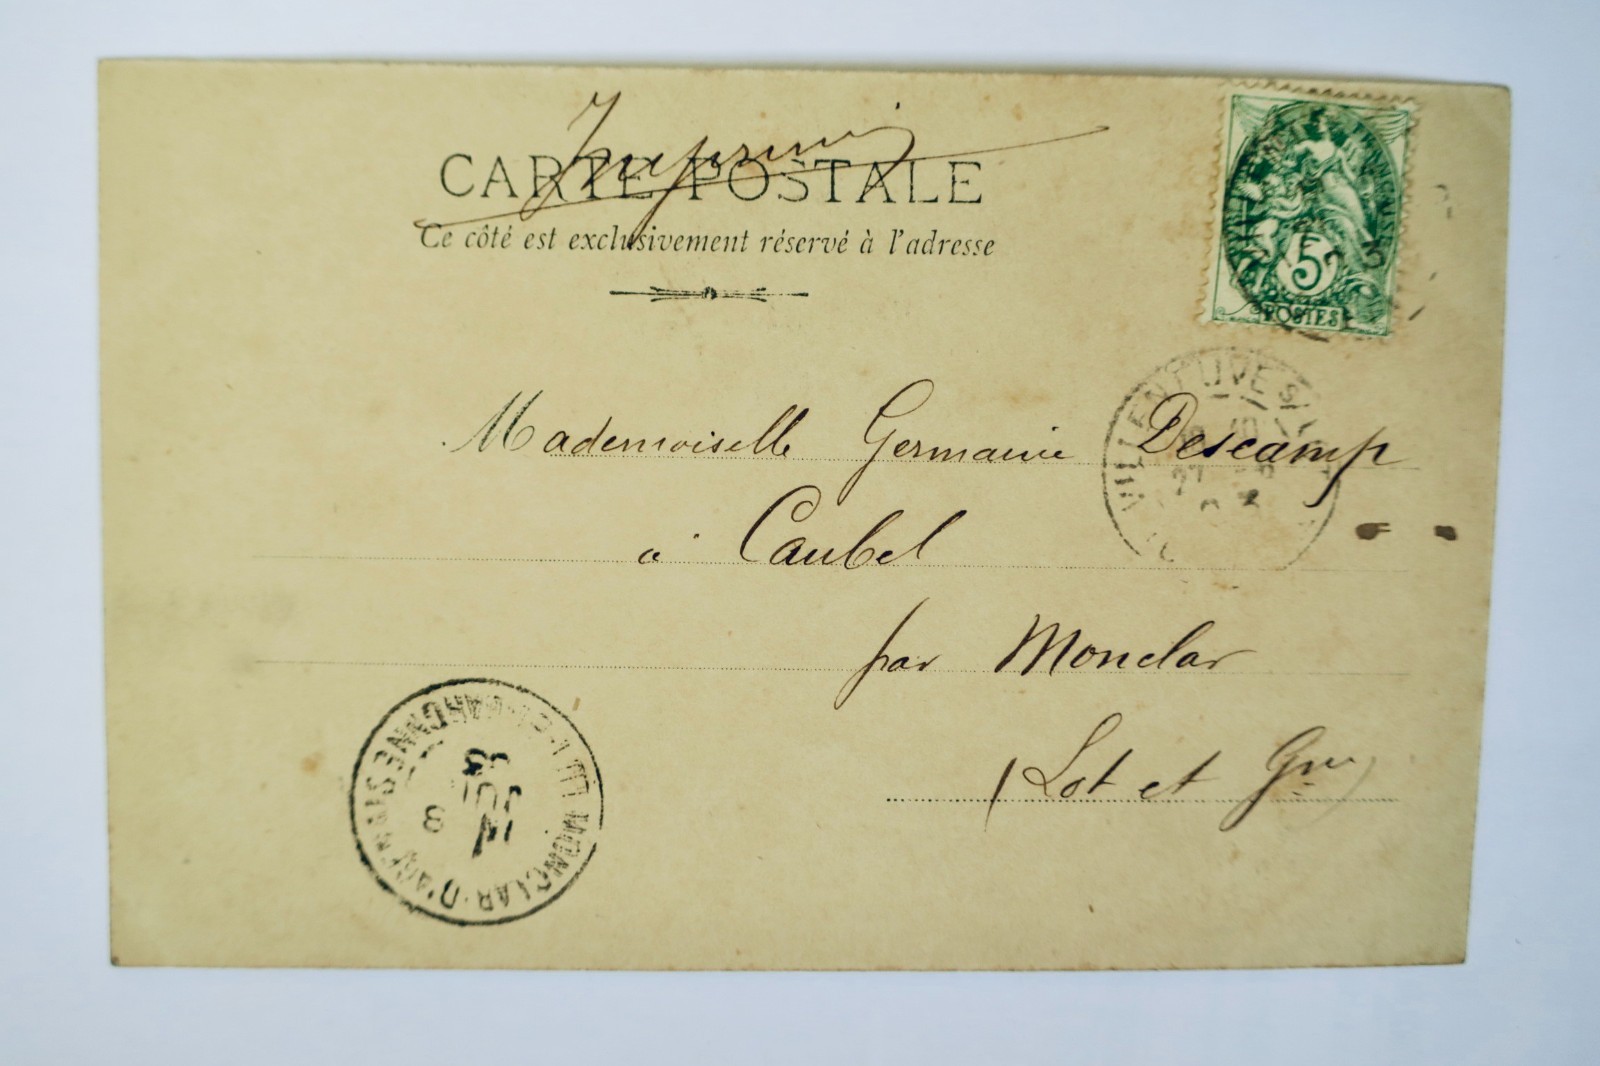 Imprimé
CARTE POSTALE
Ce côté est exclusivement réservé à l'adresse
5
POSTES
VILLENEUVE S/ LOT
Mademoiselle Germaine Descamp
à Caubel
par Monclar
(Lot et Gne)
MONCLAR-D'AGENAIS
LOT-ET-GARONNE